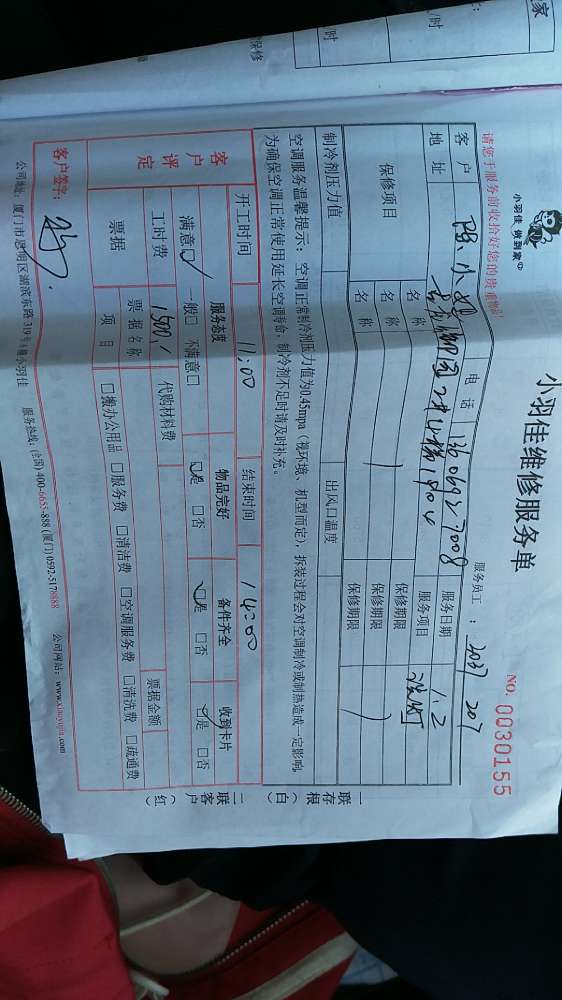 小羽佳 做到家
小羽佳维修服务单
NO. 0030155
请您于服务前收拾好您的贵重物品
服务员工：2037 207
客户 陈小姐 电话 服务日期 1.2
地址 服务项目
保修项目 名称 保修期限
名称 保修期限
名称 保修期限
制冷剂压力值 出风口温度
空调服务温馨提示：空调正常制冷剂压力值为0.45mpa（视环境、机型而定），拆装过程会对空调制冷或制热造成一定影响，
为确保空调正常使用延长空调寿命，制冷剂不足时请及时补充。
开工时间 11:00 结束时间 14:00
客户评定 服务态度 物品完好 备件齐全 收到卡片
满意☑ 一般□ 不满意□ ☑是 □否 ☑是 □否 ☑是 □否
工时费 1500 代购材料费
票据 票据名称 票据金额
项目 □搬办公用品 □服务费 □清洁费 □空调服务费 □清洗费 □疏通费
客户签字：
公司地址：厦门市思明区湖滨东路319号A幢小羽佳 服务热线：(全国) 400-6655-888 (厦门) 0592-5178888 公司网站：www.xiaoyujia.com
一联存根（白）
二联客户（红）
保修